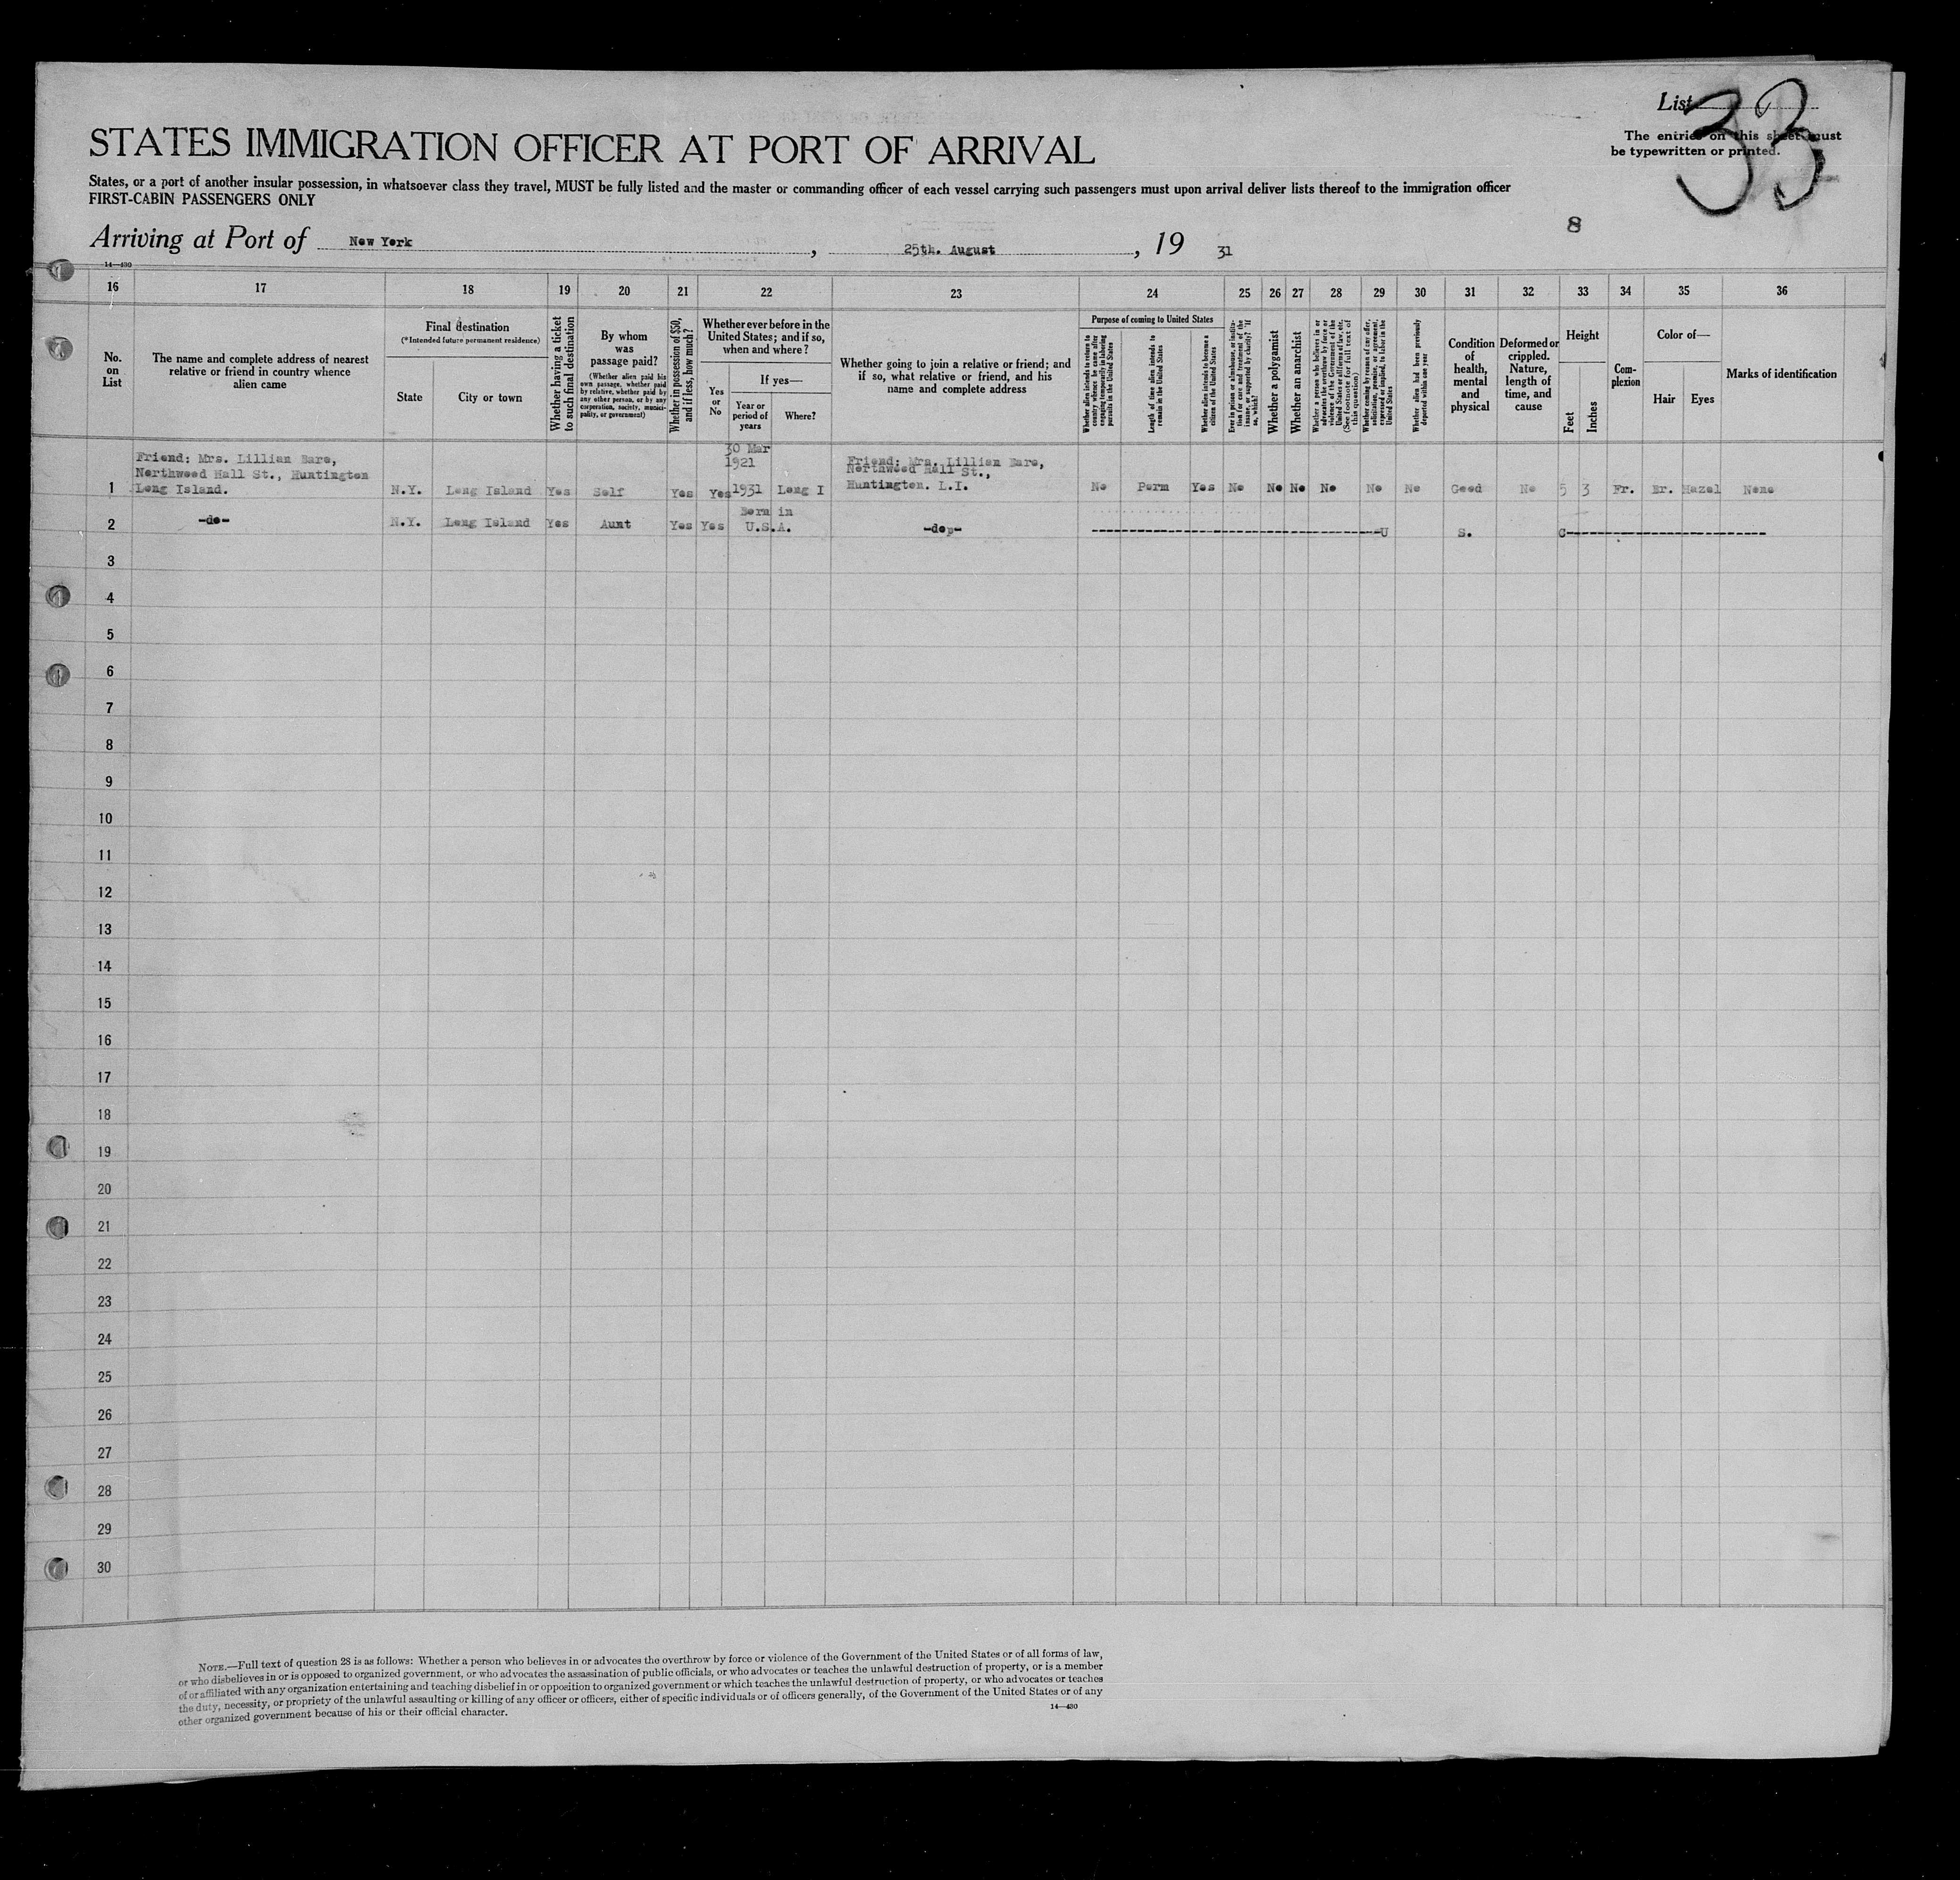 List 33
The entries on this sheet must
be typewritten or printed.
STATES IMMIGRATION OFFICER AT PORT OF ARRIVAL
States, or a port of another insular possession, in whatsoever class they travel, MUST be fully listed and the master or commanding officer of each vessel carrying such passengers must upon arrival deliver lists thereof to the immigration officer
FIRST-CABIN PASSENGERS ONLY
8
Arriving at Port of New York, 25th. August, 19 31
14—430
16 17 18 19 20 21 22 23 24 25 26 27 28 29 30 31 32 33 34 35 36
No.
on
List
The name and complete address of nearest
relative or friend in country whence
alien came
Final destination
(*Intended future permanent residence)
State
City or town
Whether having a ticket
to such final destination
By whom
was
passage paid?
(Whether alien paid his
own passage, whether paid
by relative, whether paid by
any other person, or by any
corporation, society, munici-
pality, or government)
Whether in possession of $50,
and if less, how much?
Whether ever before in the
United States; and if so,
when and where?
Yes
or
No
If yes—
Year or
period of
years
Where?
Whether going to join a relative or friend; and
if so, what relative or friend, and his
name and complete address
Purpose of coming to United States
Whether alien intends to return to
country whence he came after
engaging temporarily in laboring
pursuits in the United States
Length of time alien intends to
remain in the United States
Whether alien intends to become a
citizen of the United States
Ever in prison or almshouse, or institu-
tion for care and treatment of the
insane, or supported by charity? If
so, which?
Whether a polygamist
Whether an anarchist
Whether a person who believes in or
advocates the overthrow by force or
violence of the Government of the
United States or all forms of law, etc.
(See footnote for full text of
this question)
Whether coming by reason of any offer,
solicitation, promise, or agreement,
expressed or implied, to labor in the
United States
Whether alien had been previously
deported within one year
Condition
of
health,
mental
and
physical
Deformed or
crippled.
Nature,
length of
time, and
cause
Height
Feet
Inches
Com-
plexion
Color of—
Hair
Eyes
Marks of identification
30 Mar
Friend: Mrs. Lillian Bare, 1921 Friend: Mrs. Lillian Bare,
Northwood Hall St., Huntington Northwood Hall St.,
1 Long Island. N.Y. Long Island Yes Self Yes Yes 1931 Long I Huntington. L.I. No Perm Yes No No No No No No Good No 5 3 Fr. Br. Hazel None
Born in
2 -do- N.Y. Long Island Yes Aunt Yes Yes U.S.A. -do- U S. C
3
4
5
6
7
8
9
10
11
12
13
14
15
16
17
18
19
20
21
22
23
24
25
26
27
28
29
30
NOTE.—Full text of question 28 is as follows: Whether a person who believes in or advocates the overthrow by force or violence of the Government of the United States or of all forms of law,
or who disbelieves in or is opposed to organized government, or who advocates the assassination of public officials, or who advocates or teaches the unlawful destruction of property, or is a member
of or affiliated with any organization entertaining and teaching disbelief in or opposition to organized government or which teaches the unlawful destruction of property, or who advocates or teaches
the duty, necessity, or propriety of the unlawful assaulting or killing of any officer or officers, either of specific individuals or of officers generally, of the Government of the United States or of any
other organized government because of his or their official character.
14—430